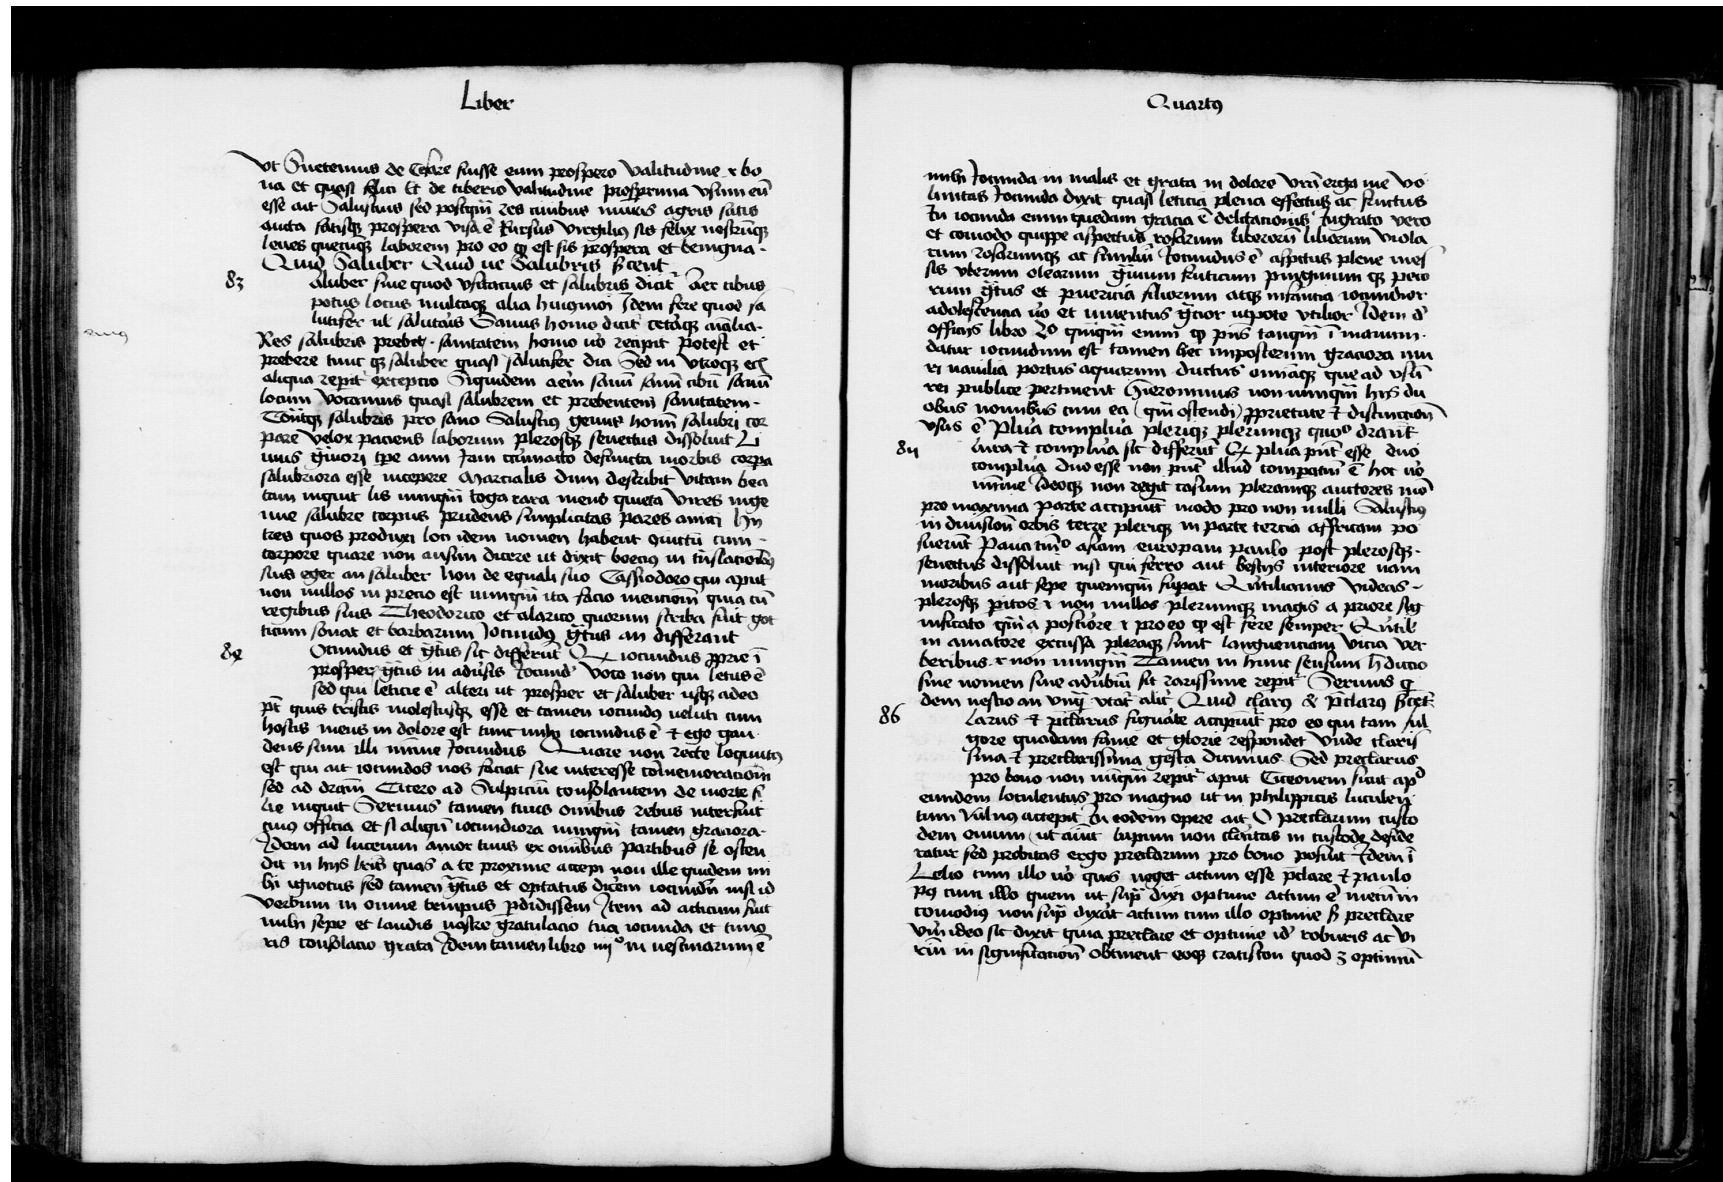 Liber
vt Suetonius de Cesare fuisse eum prospero valitudine & bo
na et quasi felici Et de tiberio valitudine prosperrima vsum eū
esse ait Salustius sed postqm̄ res ciuibus muris agris satis
aucta satisqꝫ prospera visa ē Rursus virgilius sis felix nostrūqꝫ
leues quecūqꝫ laborem pro eo qꝫ est sis prospera et benigna
Quid Saluber Quid ue Salubris
83
aluber siue quod vsitacius et salubris dicit̄ Aer cibus
potus locus multaqꝫ alia huiꝯmōi Idem fere quod sa
lutifer ul̄ salutaris Sanus homo dicit̄ ceteraqꝫ aīalia
Res salubris prebet sanitatem homo uō recipit Potest et
prebere tunc qꝫ saluber quasi salutifer dici Sed in vtroqꝫ
aliqua reperit̄ excepcio Siquidem aerem sanū
locum vocamus quasi salubrem et prebentem sanitatem
salubris pro sano Salustius genus hoīm salubri cor
pore velox paciens laborum plerosqꝫ senectus dissoluit Li
uius
salubriora esse incepere Marcialis dum describit vitam bea
tam inquit lis nunqm̄ toga rara mens quieta vires inge
nue salubre corpus prudens simplicitas pares amici Hii
tres quos produxi loci idem nomen habent
corpore quare non ausim dicere ut dixit boecius in
suis eger an saluber Non de equali suo Cassiodoro qui aput
non nullos in precio est nunqm̄ ita facio mencionem quia cū
regibus suis Theodorico et alarico quorum scriba fuit got
ticum sonat et barbarum Iocundus gratus an differant
84
Ocundus et gratus sic differūt Qꝫ iocundus pprie ī
prosper gratus in aduersis Iocundū voco non qui letus ē
sed qui leticie ē alteri ut prosper et saluber usqꝫ adeo
pōt quis tristis molestusqꝫ esse et tamen iocundus ueluti cum
hostis meus in dolore est tunc mihi iocundus ē & ego gau
dens sum illi minime Iocundus Quare non recte loquutus
est qui ait iocundos nos faciat sue interesse cōmemoracioni
sed ad Cicero ad Sulpicium consolantem de morte fi
lie inquit Seruius tamen tuus omnibus rebus interfuit
cuius officia et si aliqn̄ iocundiora nunqm̄ tamen graciora
Idem ad luceium amor tuus ex omnibus partibus se osten
dit in hiis lrīs quas a te proxime accepi non ille quidem mi
hi ignotus sed tamen gratus et optatus dicerem iocundū nisi id
verbum in omne tempus perdidissem Item ad atticum fuit
mihi sepe et laudis nostre gratulacio tua iocunda et timo
ris consolacio grata Idem tamen libro iiij° in uestinarum ē
Quartus
mihi Iocunda in malis et grata in dolore vrā erga me vo
luntas Iocunda dixit quasi leticia plena effectus ac fructus
iocunda enim quedam gracia ē delectacionis Ingrato vero
et comodo quippe aspectus rosarum
cum rosarumqꝫ ac similiū Iocundus ē aspectus plene mes
sis vberum olearum
gratus et puericia filiorum atqꝫ infancia iocundior
adolescencia uō et iuuentus gracior utpote vtilior Idem de
officijs libro 2° quicquid enim
datur iocundum est tamen hec imposterum graciora mu
ri naualia portus aquarum ductus omīaqꝫ que ad vsū
rei publice pertinent Hieronimus non nunqm̄ hiis du
obus nominibus cum ea (qm̄ ostendi) pprietate & distinccione
vsus ē Plura complura pleriqꝫ plerunqꝫ
85
lura & complura sic differūt Qꝫ plura pn̄t esse duo
complura duo esse non pn̄t illud comparatiuū ē hoc uō
minime Ideoqꝫ non regit casum plerumqꝫ auctores mō
pro maxima parte accipiunt modo pro non nulli Salustius
in diuisione orbis terre pleriqꝫ in parte tercia affricam po
suerunt Pauci asiam europam paulo post plerosqꝫ
senectus dissoluit nisi qui ferro aut bestijs interiere nam
moribus aut sepe quemqm̄ supat Quitilianus videas
plerosqꝫ & non nullos plerunqꝫ magis a priore sig
nificato qm̄ a postiore & pro eo qꝫ est fere semper Quitil
in amatore excussa pleraqꝫ sunt languencium vicia ver
beribus & non nunqm̄ Tamen in hunc sensum
siue nomen siue aduerbiū sit rarissime reperit̄ Seruius
dem nescio an vnqꝫ Quid clarus & p̄clarus
86
larus & p̄clarus figurate accipiūt̄ pro eo qui tam ful
gore quodam fame et glorie respondet vnde claris
sima & preclarissima gesta dicimus Sed preclarus
pro bono non nūqm̄ reperit̄ aput Ciceronem sicut apd
eundem loculentus pro magno ut in philippicis luculen
tum vulnus accepit In eodem opere ait O preclarum custo
dem ouium ut aiūt lupum non claritas in custode deside
ratur sed probitas ergo preclarum pro bono posuit Idem ī
Lelio cum illo uō quis neget actum esse p̄clare & paulo
pꝯ cum illo quem ut supra dixi optime actum ē mecum in
comodius non supra dixerat actum cum illo optime sꝫ preclare
ideo sic dixit quia preclare et optime idē roboris ac vi
rium in significacione obtinent eoqꝫ cratiston quod ꝫ optimū